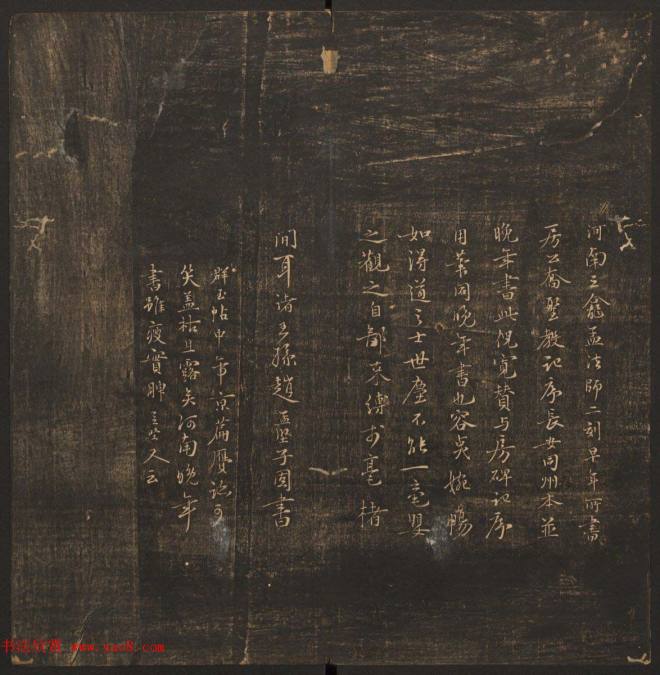 河南三龕孟法師二刻早年所書
房公喬聖教記序長安同州本並
晚年書此倪寬贊与房碑記序
用筆同晚年書也容與婉暢
如得道之士世塵不能一毫嬰
之觀之自鄙束縛於毫楮
間耳諸王孫趙孟堅子固書
群玉帖中
矣蓋枯且露矣河南晚年
書雖瘦實腴孟堅又云
www.yac8.com